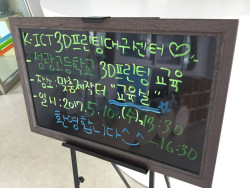 K-ICT 3D프린팅대구센터♡
- 성광고등학교 3D프린팅 교육
- 장소: 맞춤제작터 "교육실"
- 일시: 2017. 5. 10. (수), 13:30
~16:30
환영합니다^^